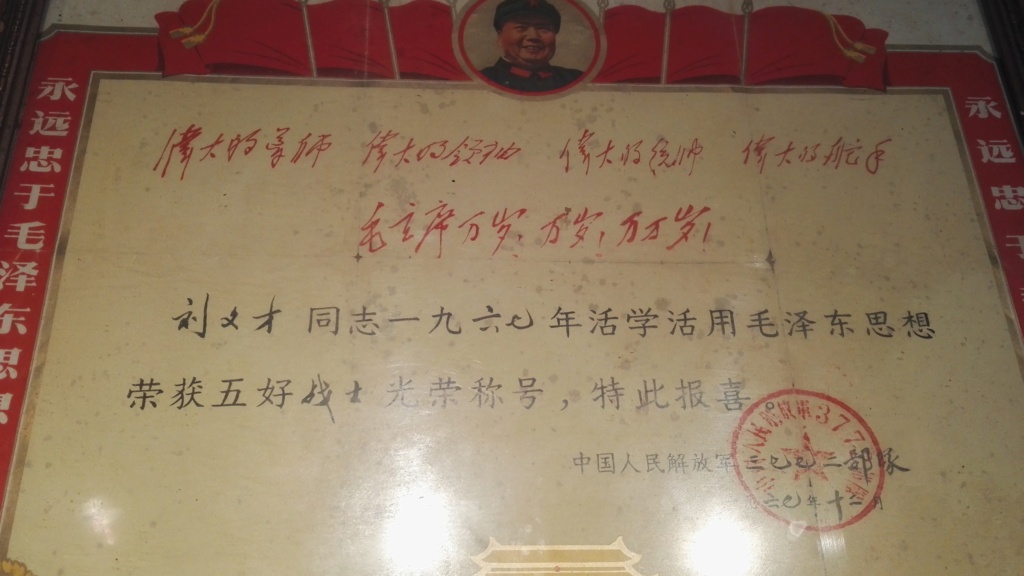 永远忠于毛泽东思想
伟大的导师 伟大的领袖 伟大的统帅 伟大的舵手
毛主席万岁！万岁！万万岁！
刘文才同志一九六七年活学活用毛泽东思想
荣获五好战士光荣称号，特此报喜。
中国人民解放军三七七二部队
年十二月
永远忠于